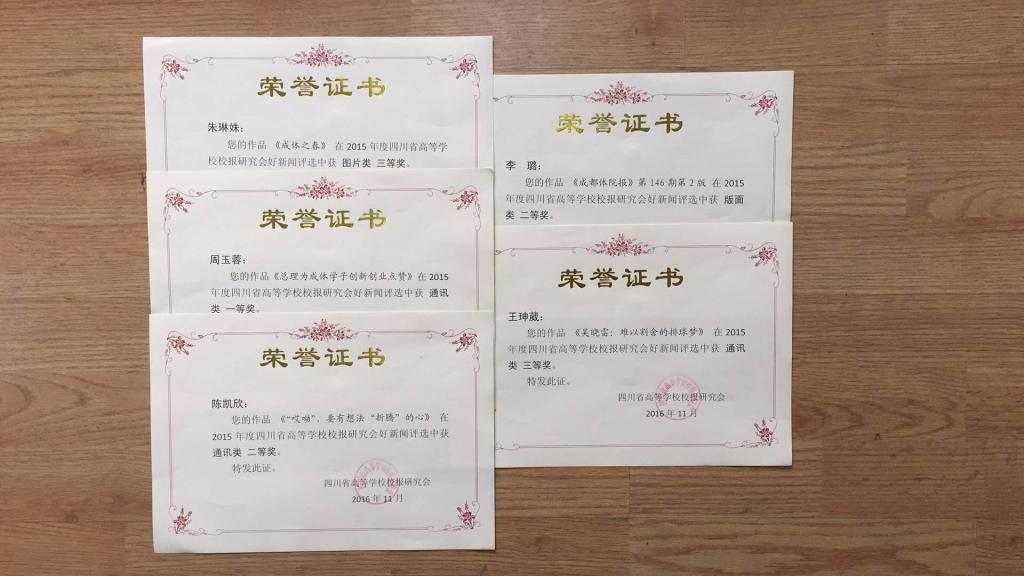 荣誉证书
朱琳姝：
您的作品 《成体之春》 在 2015 年度四川省高等学
校校报研究会好新闻评选中获 图片类 三等奖。
荣誉证书
周玉蓉：
您的作品《总理为成体学子创新创业点赞》在 2015
年度四川省高等学校校报研究会好新闻评选中获 通讯
类 一等奖。
荣誉证书
陈凯欣：
您的作品 《“哎呦”，要有想法“折腾”的心》 在
2015 年度四川省高等学校校报研究会好新闻评选中获
通讯类 二等奖。
特发此证。
四川省高等学校校报研究会
2016 年 11 月
荣誉证书
李 璐：
您的作品 《成都体院报》第 146 期第 2 版 在 2015
年度四川省高等学校校报研究会好新闻评选中获 版面
类 二等奖。
荣誉证书
王珅葳：
您的作品 《吴晓雷：难以割舍的排球梦》 在 2015
年度四川省高等学校校报研究会好新闻评选中获 通讯
类 三等奖。
特发此证。
四川省高等学校校报研究会
2016 年 11 月